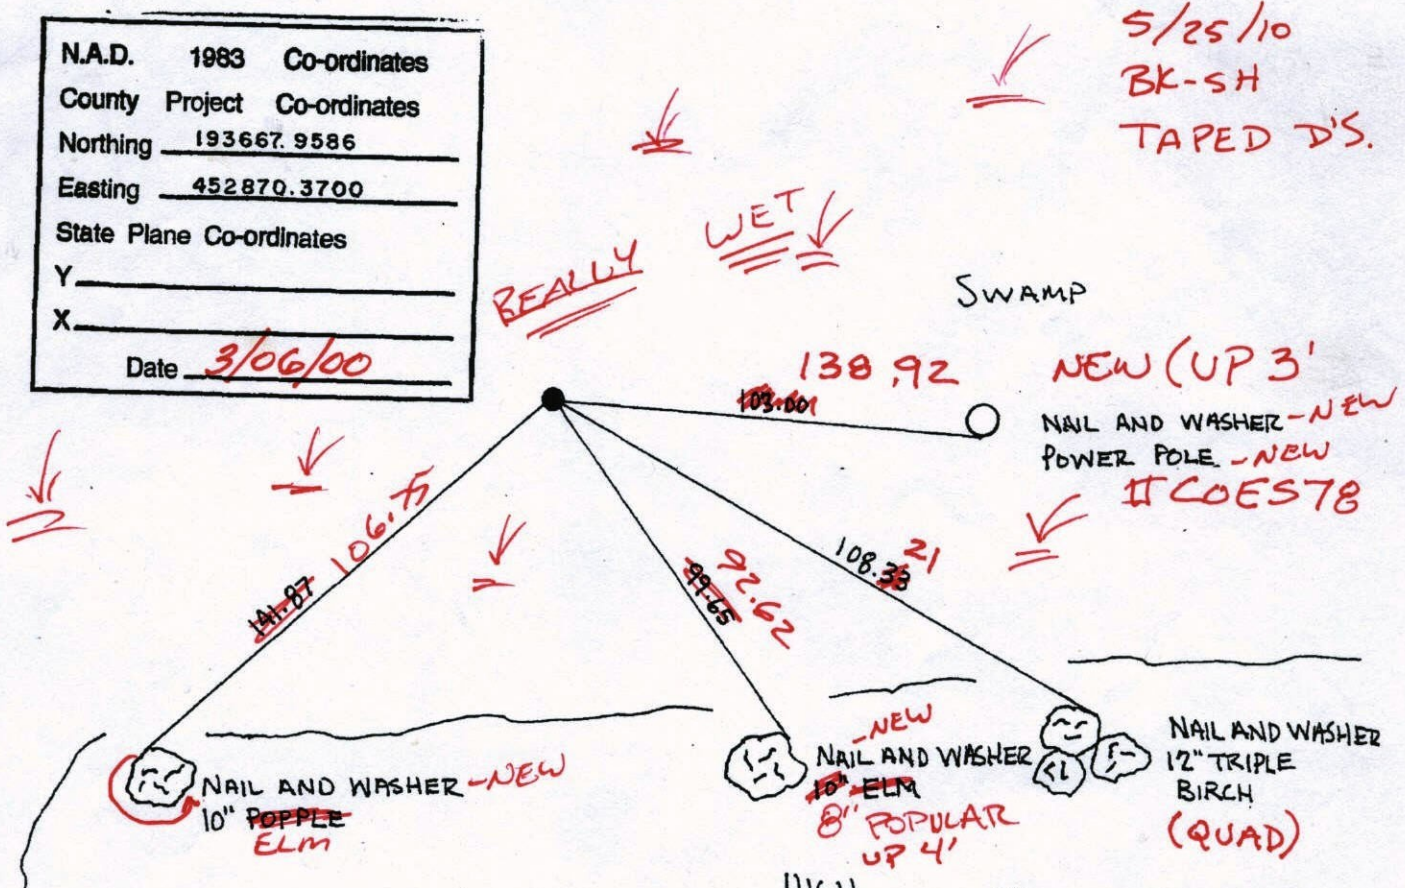 N.A.D. 1983 Co-ordinates
County Project Co-ordinates
Northing 193667.9586
Easting 452870.3700
State Plane Co-ordinates
Y
X
Date 3/06/00
5/25/10
BK-SH
TAPED D'S.
REALLY WET
SWAMP
138.92
103.00
NEW (UP 3'
NAIL AND WASHER -NEW
POWER POLE -NEW
#COES78
141.87
99.65
92.62
108.33
21
NAIL AND WASHER -NEW
10" POPPLE
ELM
-NEW
NAIL AND WASHER
10" ELM
8" POPULAR
UP 4'
NAIL AND WASHER
12" TRIPLE
BIRCH
(QUAD)